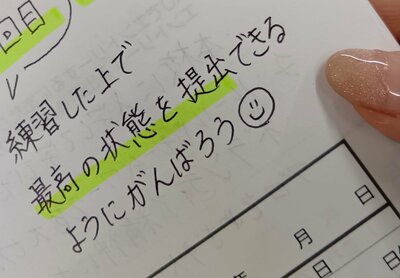 回目
練習した上で
最高の状態を提出できる
ようにがんばろう
年 月 日
日